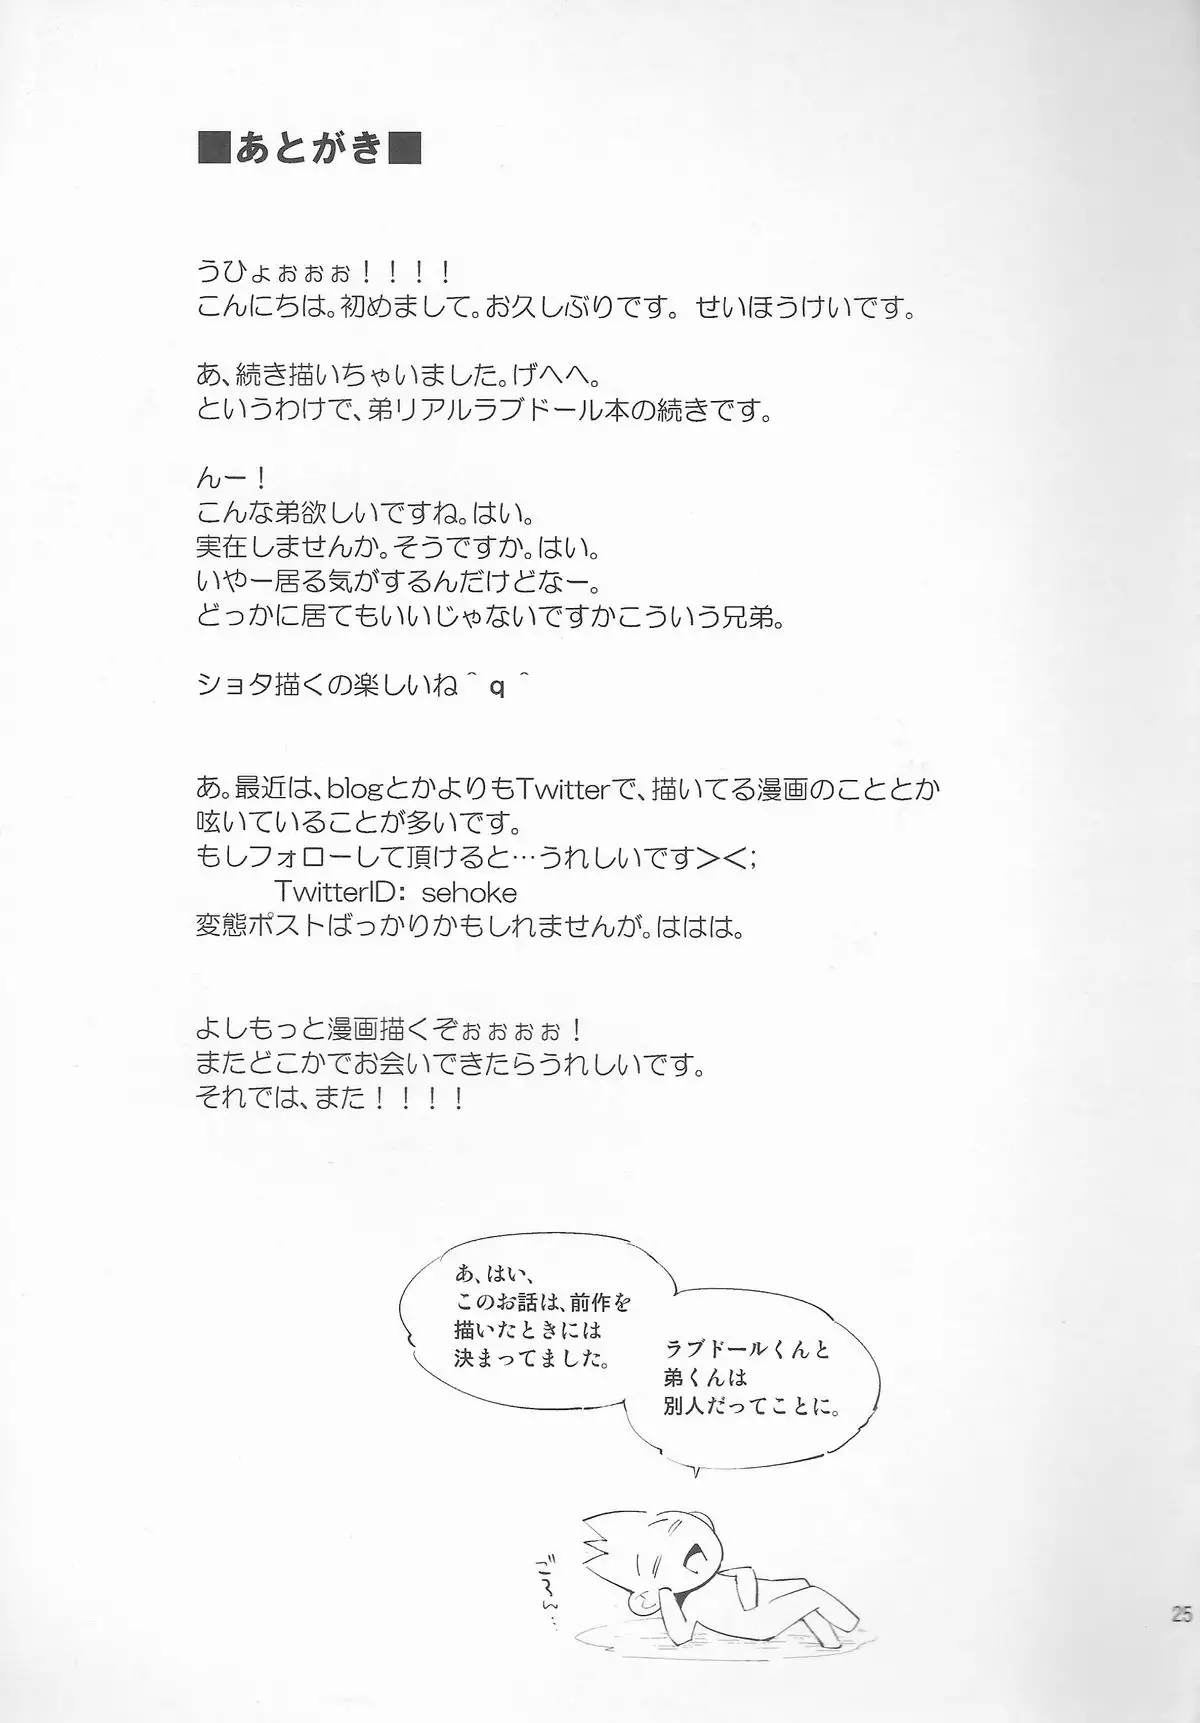 ■あとがき■
うひょぉぉぉ！！！！
こんにちは。初めまして。お久しぶりです。せいほうけいです。
あ、続き描いちゃいました。げへへ。
というわけで、弟リアルラブドール本の続きです。
んー！
こんな弟欲しいですね。はい。
実在しませんか。そうですか。はい。
いやー居る気がするんだけどなー。
どっかに居てもいいじゃないですかこういう兄弟。
ショタ描くの楽しいね＾q＾
あ。最近は、blogとかよりもTwitterで、描いてる漫画のこととか
呟いていることが多いです。
もしフォローして頂けると…うれしいです＞＜;
TwitterID: sehoke
変態ポストばっかりかもしれませんが。ははは。
よしもっと漫画描くぞぉぉぉぉ！
またどこかでお会いできたらうれしいです。
それでは、また！！！！
あ、はい、
このお話は、前作を
描いたときには
決まってました。
ラブドールくんと
弟くんは
別人だってことに。
ごろん…
25